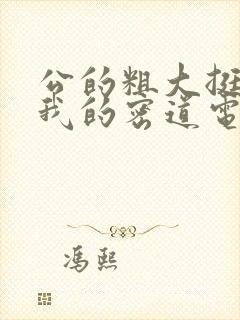 公的粗大挺
我的密道电
冯熙